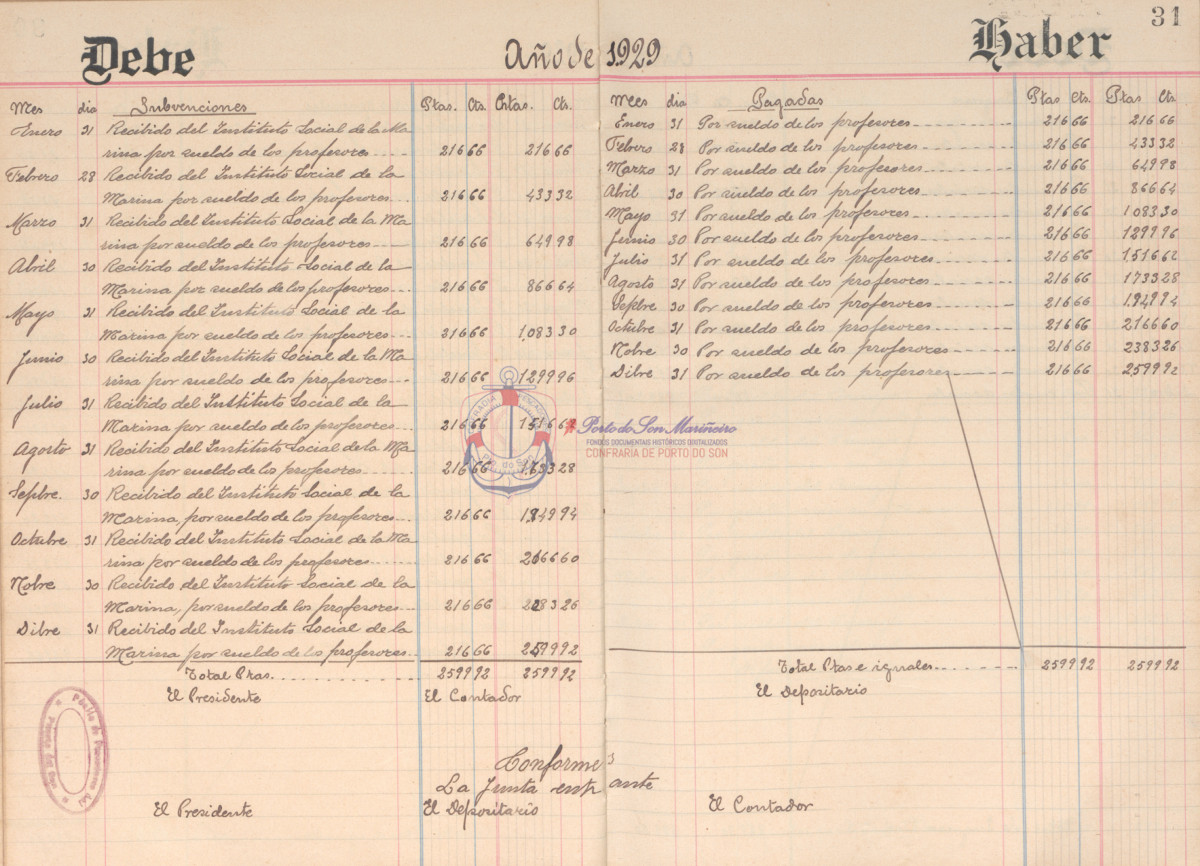 31
Debe Año de 1929 Haber
Mes dia Subvenciones Ptas. Cts. Ptas. Cts.
Enero 31 Recibido del Instituto Social de la Ma
rina por sueldo de los profesores 216 66 216 66
Febrero 28 Recibido del Instituto Social de la
Marina por sueldo de los profesores 216 66 433 32
Marzo 31 Recibido del Instituto Social de la Ma
rina por sueldo de los profesores 216 66 649 98
Abril 30 Recibido del Instituto Social de la
Marina por sueldo de los profesores 216 66 866 64
Mayo 31 Recibido del Instituto Social de la
Marina por sueldo de los profesores 216 66 1,083 30
Junio 30 Recibido del Instituto Social de la Ma
rina por sueldo de los profesores 216 66 1299 96
Julio 31 Recibido del Instituto Social de la
Marina por sueldo de los profesores 216 66 1516 62
Agosto 31 Recibido del Instituto Social de la Ma
rina por sueldo de los profesores 216 66 28
Sepbre. 30 Recibido del Instituto Social de la
Marina, por sueldo de los profesores 216 66 1949 94
Octubre 31 Recibido del Instituto Social de la Ma
rina por sueldo de los profesores 216 66 2166 60
Nobre 30 Recibido del Instituto Social de la
Marina, por sueldo de los profesores 216 66 2383 26
Dibre 31 Recibido del Instituto Social de la
Marina por sueldo de los profesores 216 66 2599 92
Total Ptas. 2599 92 2599 92
El Presidente El Contador
Mees dia Pagadas Ptas Cts. Ptas Cts
Enero 31 Por sueldo de los profesores 216 66 216 66
Febrero 28 Por sueldo de los profesores 216 66 433 32
Marzo 31 Por sueldo de los profesores 216 66 649 98
Abril 30 Por sueldo de los profesores 216 66 866 64
Mayo 31 Por sueldo de los profesores 216 66 1083 30
Junio 30 Por sueldo de los profesores 216 66 1299 96
Julio 31 Por sueldo de los profesores 216 66 1516 62
Agosto 31 Por sueldo de los profesores 216 66 1733 28
Sepbre 30 Por sueldo de los profesores 216 66 1949 94
Octubre 31 Por sueldo de los profesores 216 66 2166 60
Nobre 30 Por sueldo de los profesores 216 66 2383 26
Dibre 31 Por sueldo de los profesores 216 66 2599 92
Total Ptas e iguales 2599 92 2599 92
El Depositario
Conforme
La Junta ante
El Presidente El Depositario El Contador
Porto do Son Mariñeiro
FONDOS DOCUMENTAIS HISTÓRICOS DIXITALIZADOS
CONFRARIA DE PORTO DO SON